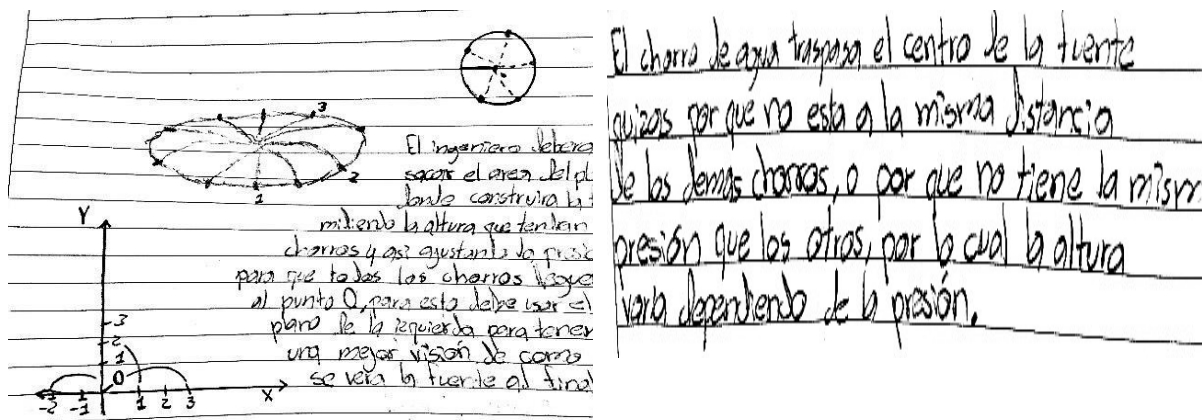 3
El ingeniero debera
sacar el area del pl
donde construira la f
midiendo la altura que tendran
chorros y asi ajustando la presió
para que todos los chorros llegue
al punto 0, para esto debe usar el
plano de la izquierda para tener
una mejor visión de como
se vera la fuente al final
2
1
Y
3
2
1
0
-2 -1 1 2 3 X
El chorro de agua traspasa el centro de la fuente
quizas por que no esta a la misma distancia
de los demas chorros, o por que no tiene la mism
presión que los otros, por lo cual la altura
varia dependiendo de la presión.